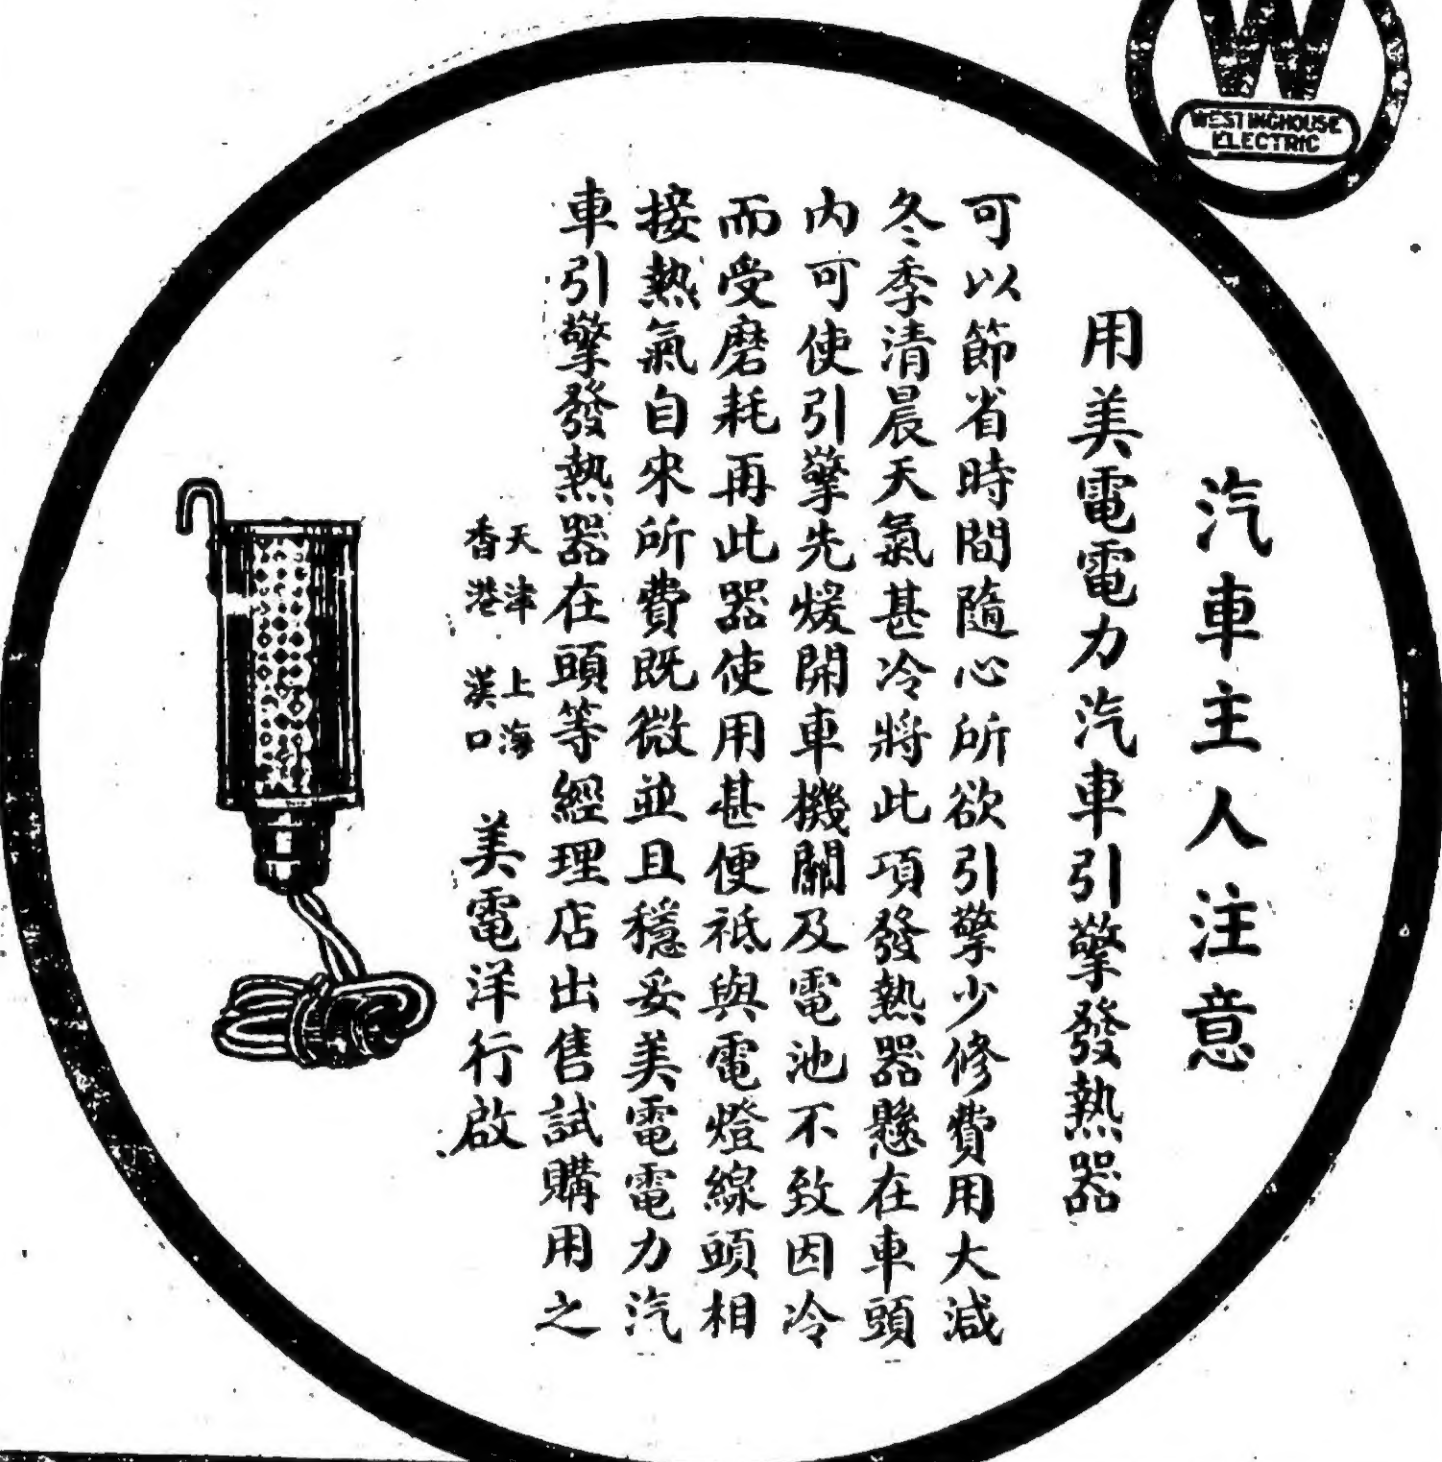 W
WESTINGHOUSE
ELECTRIC
汽車主人注意
用美電電力汽車引擎發熱器
可以節省時間隨心所欲引擎少修費用大減
冬季清晨天氣甚冷將此項發熱器懸在車頭
內可使引擎先煖開車機關及電池不致因冷
而受磨耗再此器使用甚便祗與電燈線頭相
接熱氣自來所費既微並且穩妥美電電力汽
車引擎發熱器在頭等經理店出售試購用之
天津 上海
香港 漢口
美電洋行啟